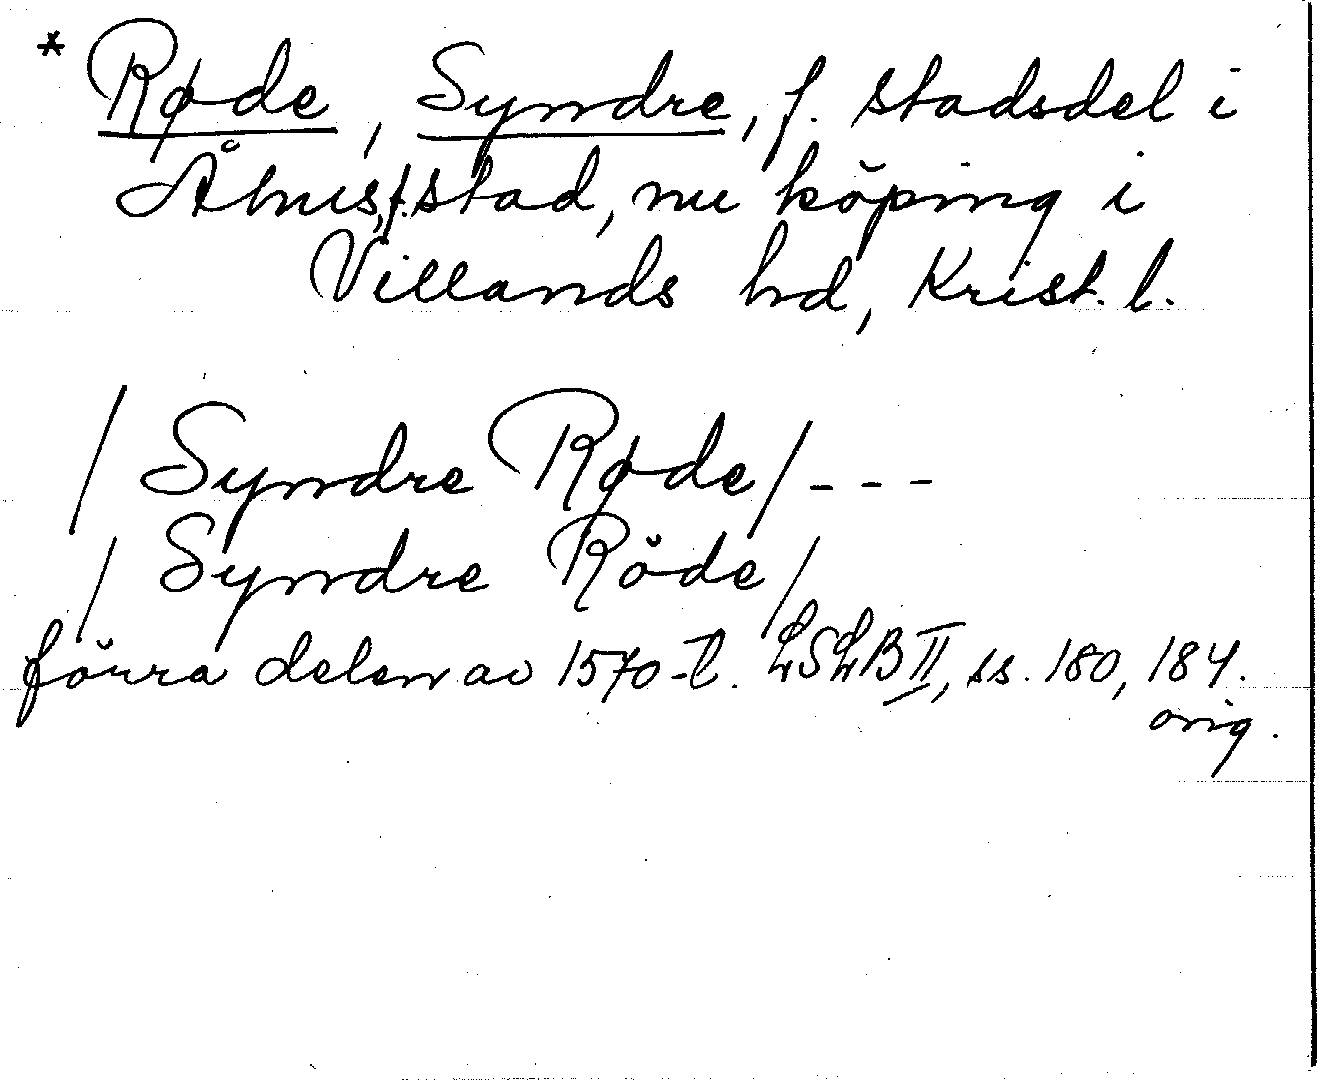 * Røde, Syndre, f. stadsdel i
Åhus, f. stad, nu köping i
Villands hd, Krist. l.
/ Syndre Røde / - - -
/ Syndre Röde /
förra delen av 1570-t. LSLB II, ss. 180, 184.
orig.